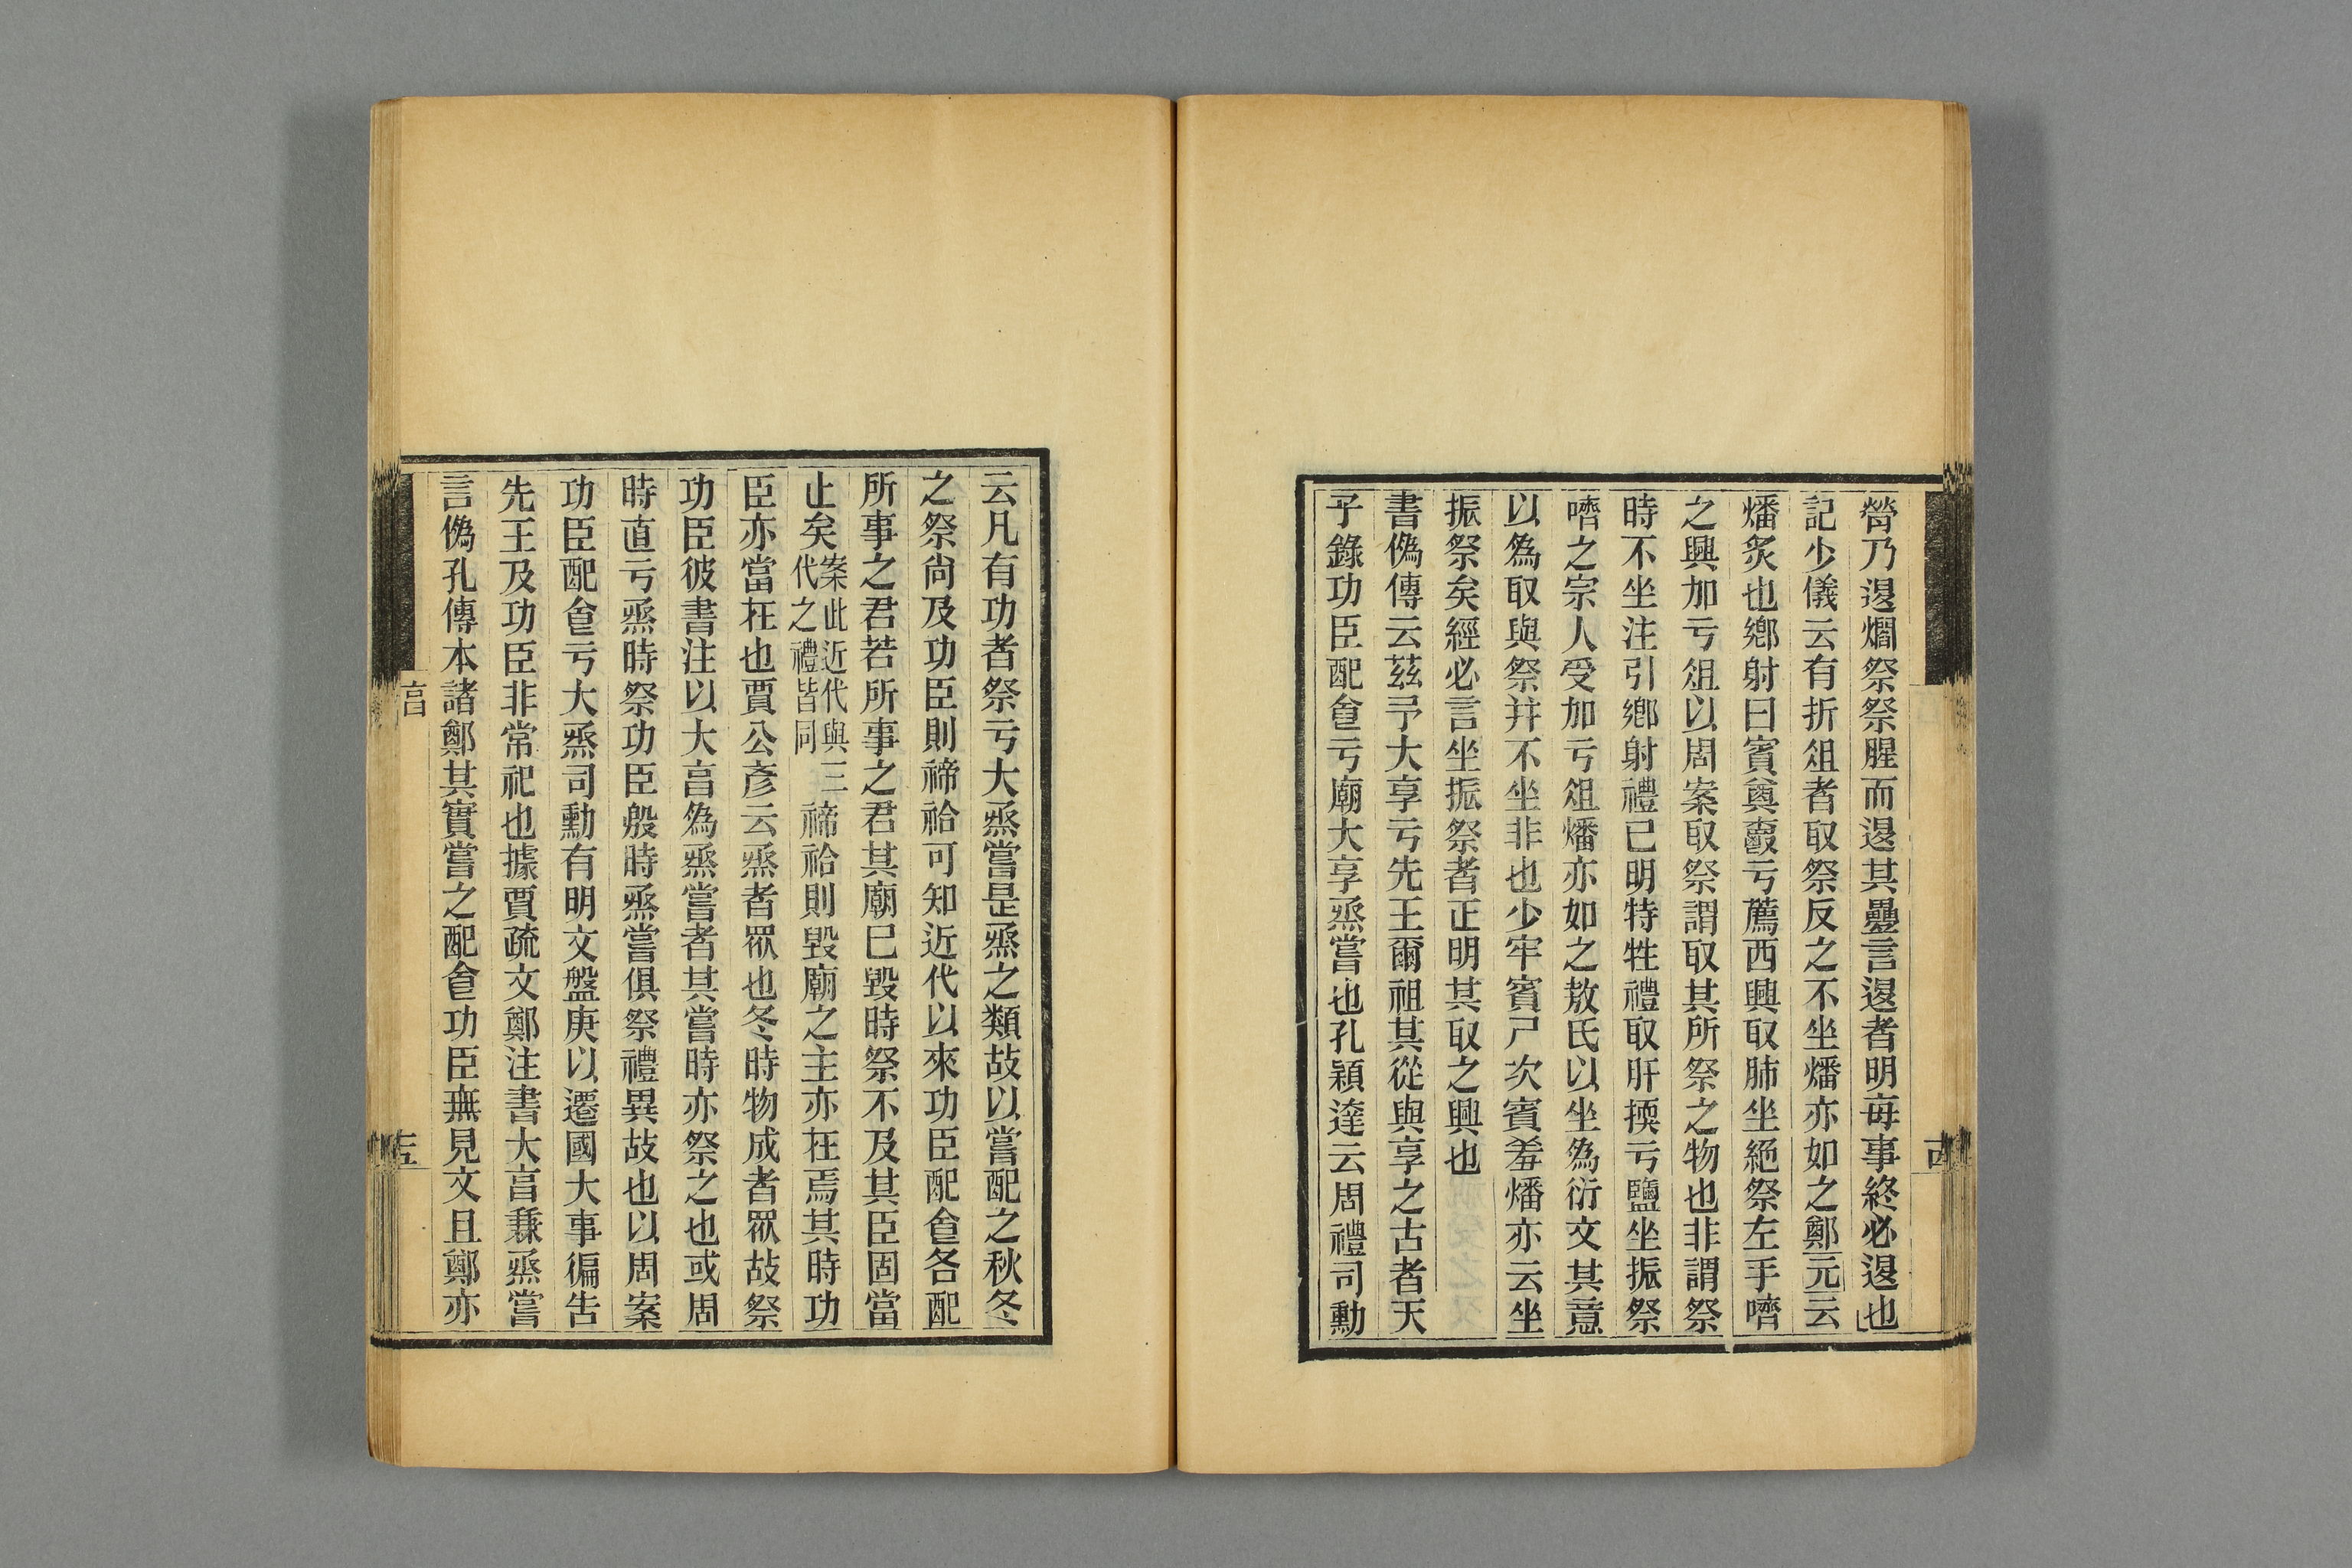 膋乃𨓤爓祭祭腥而𨓤其曡言𨓤者明每事終必𨓤也
記少儀云有折俎者取祭反之不坐燔亦如之鄭元云
燔炙也鄉射曰賓奠𣝣亏薦西興取肺坐絕祭左手嚌
之興加亏俎以周案取祭謂取其所祭之物也非謂祭
時不坐注引鄉射禮已明特牲禮取肝擩亏鹽坐振祭
嚌之宗人受加亏俎燔亦如之敖氏以坐為衍文其意
以為取與祭并不坐非也少牢賓尸次賓羞燔亦云坐
振祭矣經必言坐振祭者正明其取之興也
書僞傳云茲予大享亏先王爾祖其從與享之古者天
子錄功臣配𠊊亏廟大享烝嘗也孔穎達云周禮司勳
云凡有功者祭亏大烝嘗是烝之類故以嘗配之秋冬
之祭尚及功臣則禘祫可知近代以來功臣配𠊊各配
所事之君若所事之君其廟巳毀時祭不及其臣固當
止矣案此近代與三代之禮皆同禘祫則毀廟之主亦在焉其時功
臣亦當在也賈公彥云烝者眾也冬時物成者眾故祭
功臣彼書注以大㐭為烝嘗者其嘗時亦祭之也或周
時直亏烝時祭功臣殷時烝嘗俱祭禮異故也以周案
功臣配𠊊亏大烝司勳有明文盤庚以遷國大事徧告
先王及功臣非常祀也據賈疏文鄭注書大㐭兼烝嘗
言僞孔傳本諸鄭其實嘗之配𠊊功臣無見文且鄭亦